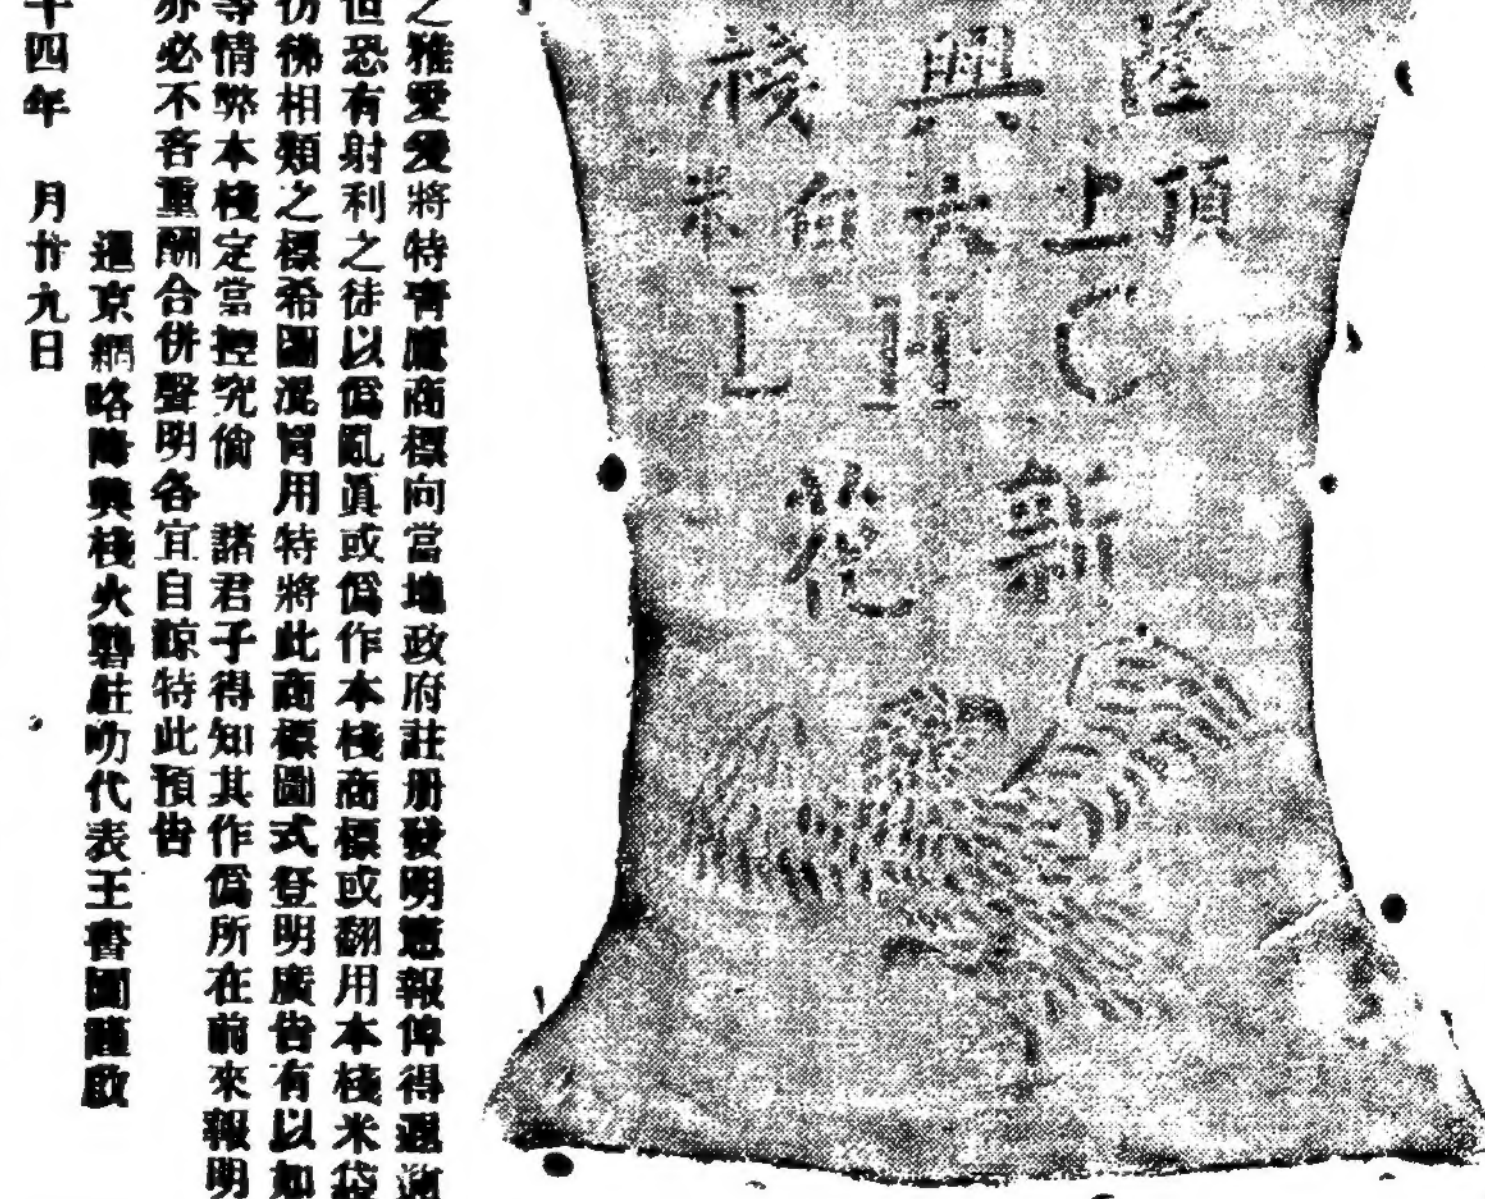 之雅愛爰將特靑鷹商標向當地政府註册發明憲報俾得遐邇
但恐有射利之徒以僞亂眞或僞作本棧商標或翻用本棧米袋
彷彿相類之標希圖混肴用特將此商標圖式登明廣告有以如
等情弊本棧定當控究倘 諸君子得知其作僞所在前來報明
亦必不吝重酬合併聲明各宜自諒特此預告
暹京網略隆興棧火礱駐叻代表王書圖謹啟
十四年 月廿九日
隆興棧
頂上白米
C H L